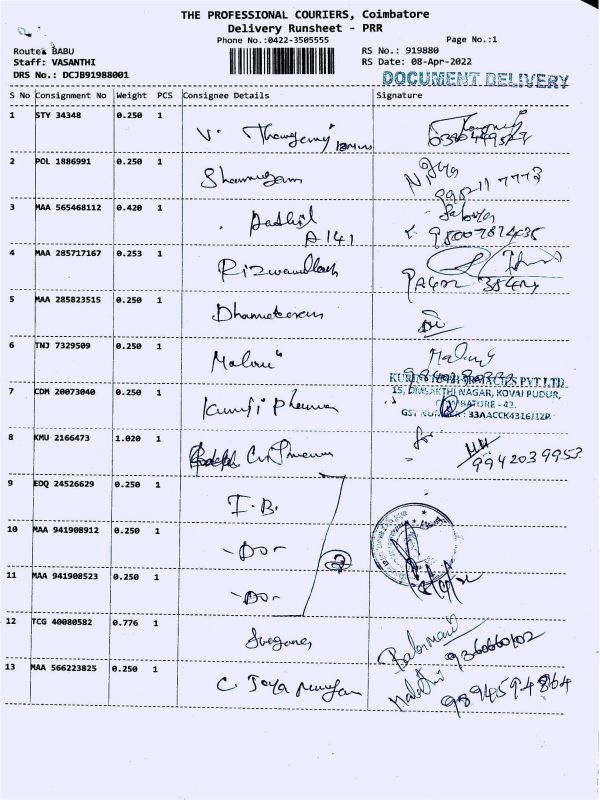 THE PROFESSIONAL COURIERS, Coimbatore
Delivery Runsheet - PRR
Phone No.:0422-3505555
Page No.:1
Route: BABU
RS No.: 919880
Staff: VASANTHI
RS Date: 08-Apr-2022
DRS No.: DCJB91988001
DOCUMENT DELIVERY
S No Consignment No Weight PCS Consignee Details Signature
1 STY 34348 0.250 1 V.
2 POL 1886991 0.250 1 Shanmugam
99521 17773
3 MAA 565468112 0.420 1
A 141
4 MAA 285717167 0.253 1
5 MAA 285823515 0.250 1
6 TNJ 7329509 0.250 1 Malini
PVT LTD
15, SAKTHI NAGAR, KOVAI PUDUR,
7 CDM 20073040 0.250 1 Kurinji Pharma
COIMBATORE - 42.
GST NUMBER : 33AACCK4316J1ZP
8 KMU 2166473 1.020 1 for
9942039953
9 EDQ 24526629 0.250 1 I.B.
10 MAA 941908912 0.250 1 -Do-
11 MAA 941908523 0.250 1 -Do-
12 TCG 40080582 0.776 1 Balamani
9360660102
13 MAA 566223825 0.250 1 C. Jaya Murugan Malathi
9894594864